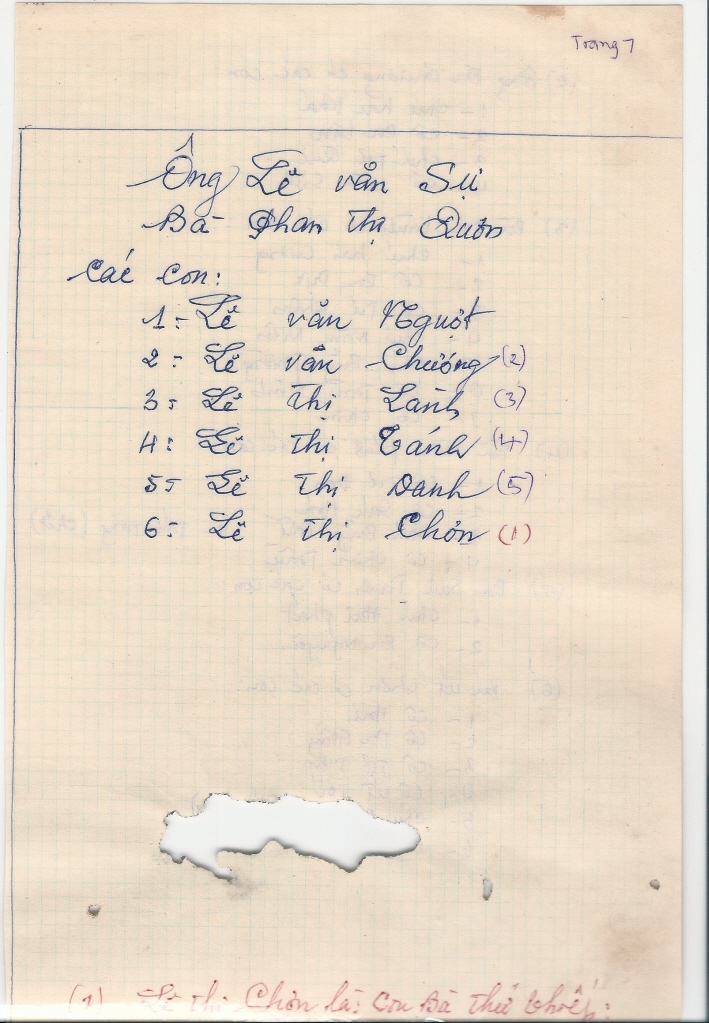 Trang 7
Ông Lê văn Sụ
Bà Phan Thị
Các con:
1- Lê văn Nguột
2- Lê văn Chương (2)
3- Lê Thị Lành (3)
4- Lê Thị Tánh (4)
5- Lê Thị Danh (5)
6- Lê Thị Chơn (1)
(1) Lê Thị Chơn là: con Bà thứ